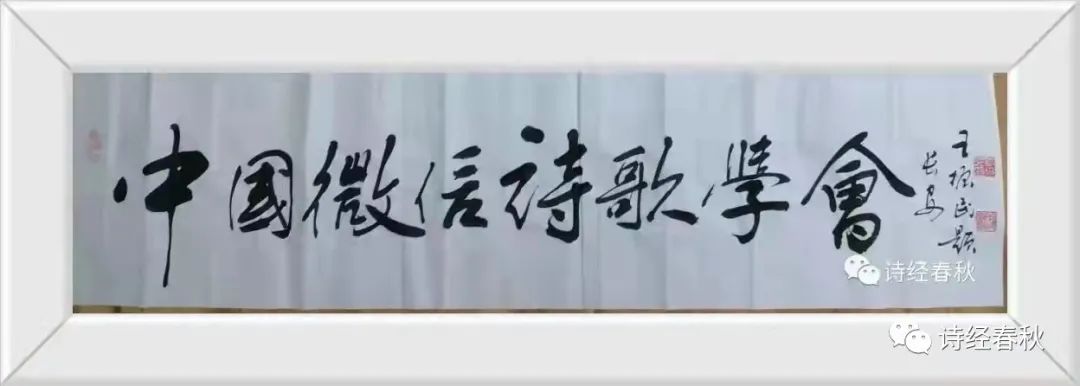 中國微信詩歌學會
長安
王
民題
诗经春秋
诗经春秋